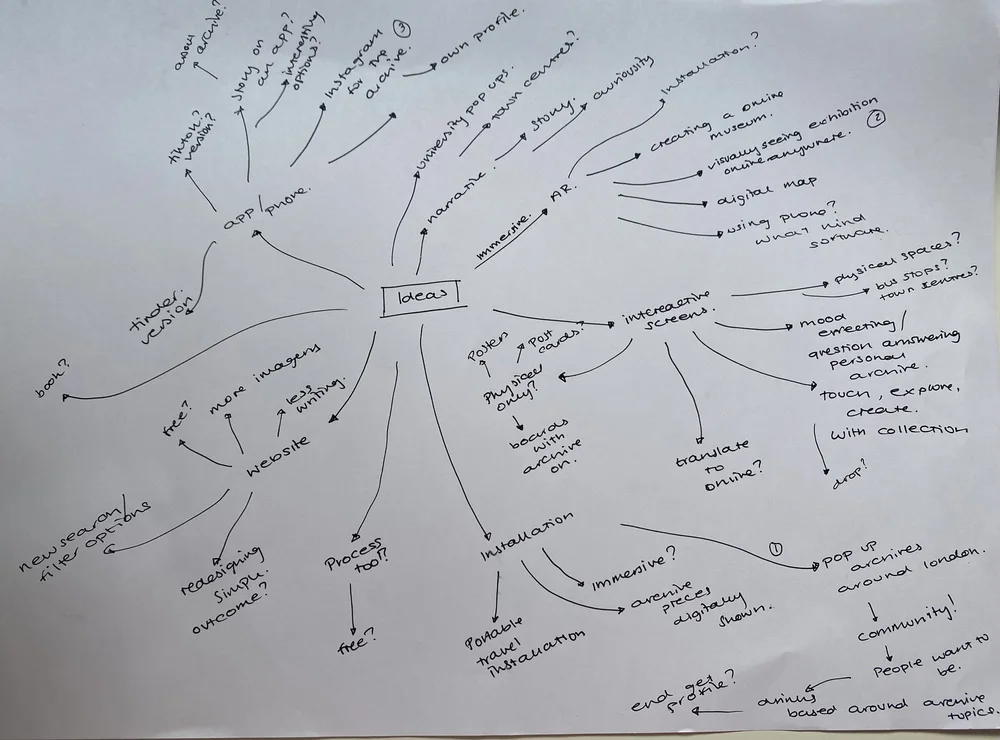 archive?
Story on
an app?
interesting
options?
Instagram
for the
archive.
③
own profile.
tiktok?
version?
app/
phone.
tinder.
version
book?
university pop ups.
town centres?
narrative.
story.
curiousity
immersive.
AR.
Installation?
creating a online
museum.
visually seeing exhibition
online anywhere.
②
digital map
using phone?
what kind
software.
Ideas
intereactive
screens.
physical spaces?
bus stops?
town centres?
mood
question answering
personal
archive.
touch, explore,
create.
with collection
drop?
translate
to
online?
Posters
Post
cards?
Physical
only?
boards
with
archive
on.
Website
free?
more images
less
writing.
new search/
filter options
redesigning
simple.
outcome?
Process
tool?
free?
Installation
Portable
travel
installation
immersive?
archive
pieces
digitally
shown.
①
POP UP
archives
around london.
community!
People want to
be.
based around archive
topics.
end get
profile?